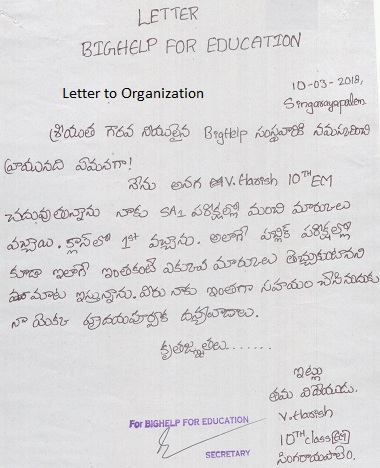 LETTER
BIGHELP FOR EDUCATION
Letter to Organization
10-03-2018,
Singarayapalem
శ్రీయుత గౌరవ నీయులైన BigHelp సంస్థవారికి నమస్కరించి
వ్రాయునది ఏమనగా!
నేను అనగా V. Harish 10TH EM
చదువుతున్నాను నాకు SA1 పరీక్షల్లో మంచి మార్కులు
వచ్చాయి. క్లాస్‌లో 1st వచ్చాను. అలాగే పబ్లిక్ పరీక్షల్లో
కూడా ఇలాగే ఇంతకంటే ఎక్కువ మార్కులు తెచ్చుకుంటానని
మాట ఇస్తున్నాను. మీరు నాకు ఇంతగా సహాయం చేసినందుకు
నా యొక్క హృదయపూర్వక ధన్యవాదాలు.
కృతజ్ఞతలు.......
ఇట్లు
తమ విధేయుడు.
V. Harish
10TH class(EM)
సింగరాయపాలెం.
For BIGHELP FOR EDUCATION
SECRETARY